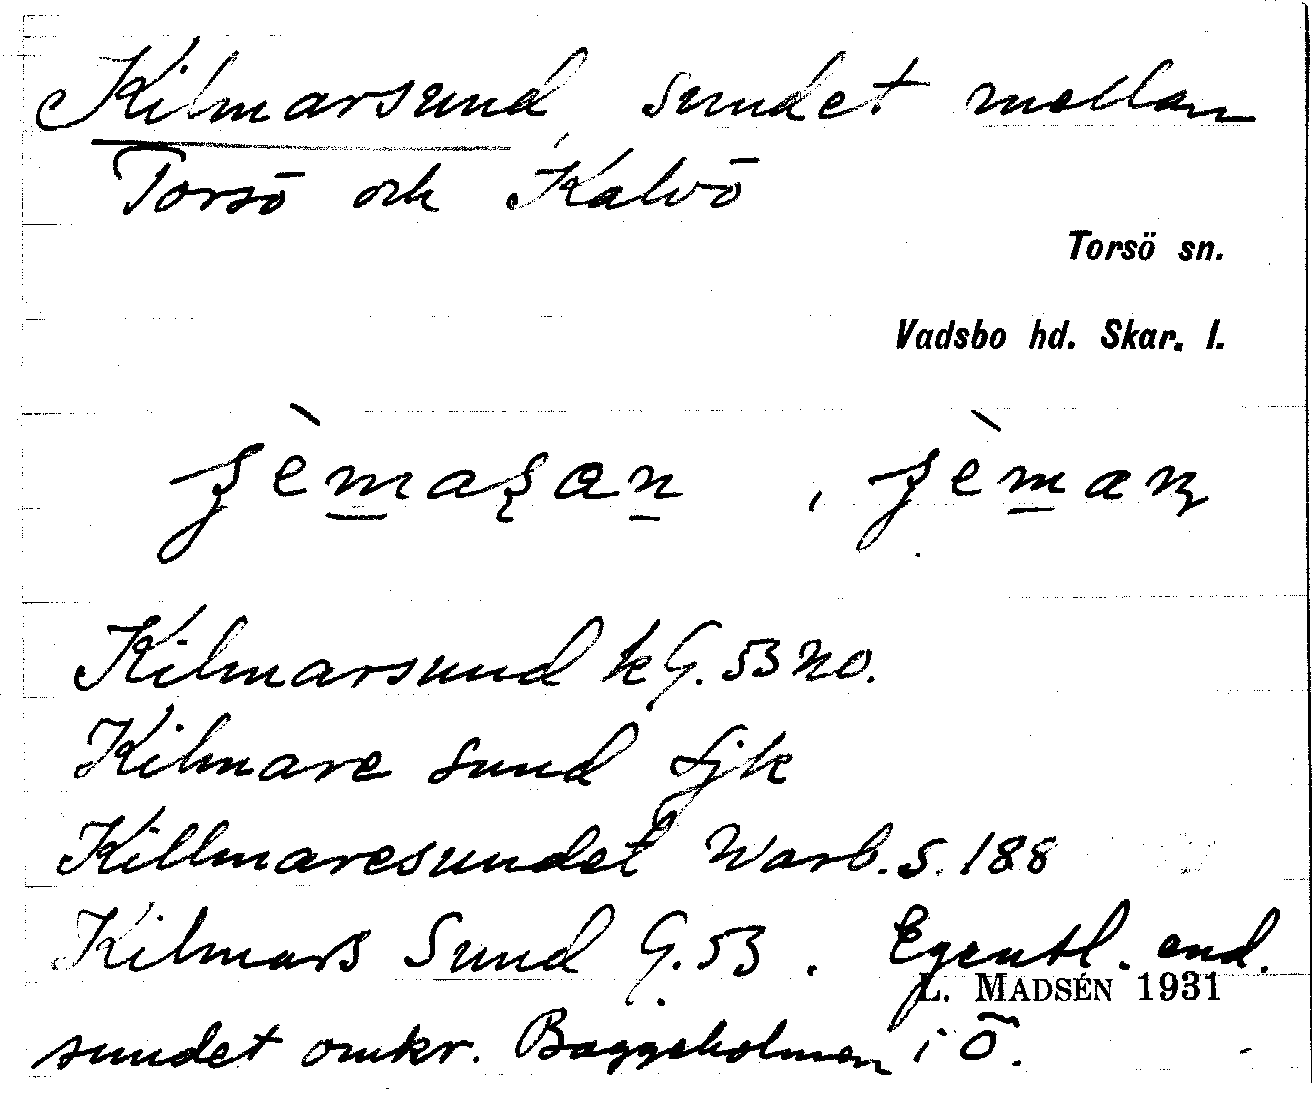 Kilmarsund, sundet mellan
Torsö och Kalvö
Torsö sn.
Vadsbo hd. Skar. l.
Kilmarsund kG. 53 NO.
Kilmare sund fjk
Killmaresundet Warb. s. 188
Kilmars Sund G. 53. Egentl. end.
L. MADSÉN 1931
sundet omkr. Baggeholmen i Ö.